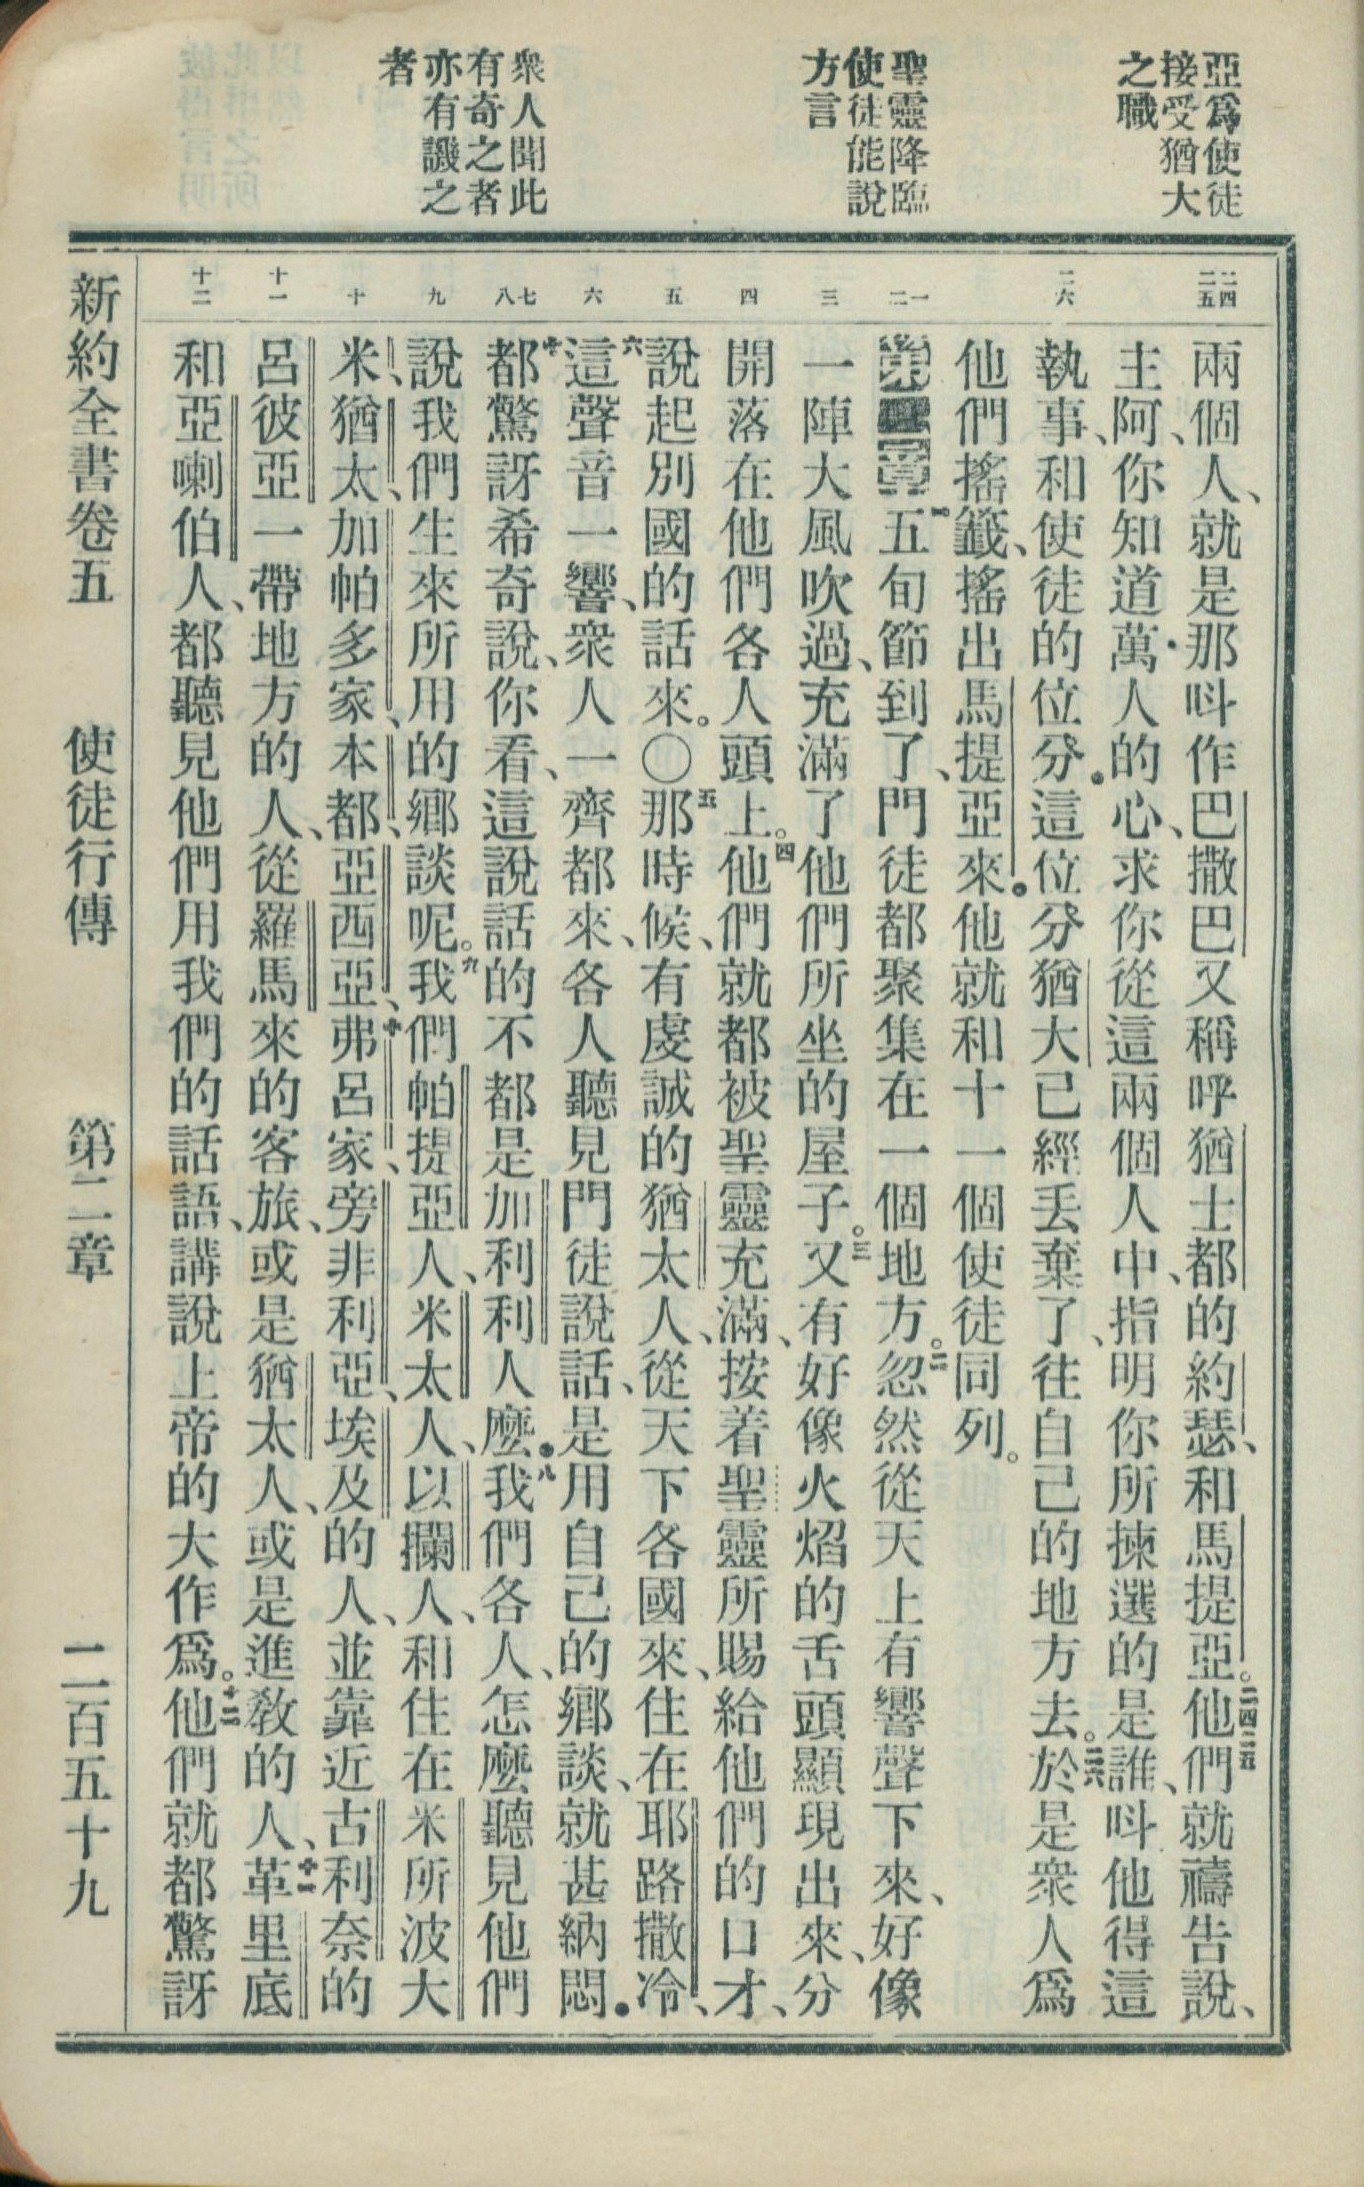 亞爲使徒
接受猶大
之職
聖靈降臨
使徒能說
方言
衆人聞此
有奇之者
亦有譏之
者
二四
二五
二六
一
二
三
四
五
六
七
八
九
十
十一
十二
兩個人、就是那呌作巴撒巴又稱呼猶士都的約瑟、和馬提亞。二四二五他們就禱告說、
主阿、你知道萬人的心、求你從這兩個人中、指明你所揀選的是誰、呌他得這
執事、和使徒的位分。這位分猶大已經丢棄了、往自己的地方去。二六於是衆人爲
他們搖籤、搖出馬提亞來。他就和十一個使徒同列。
第二章一五旬節到了、門徒都聚集在一個地方。二忽然從天上有響聲下來、好像
一陣大風吹過、充滿了他們所坐的屋子。三又有好像火焰的舌頭顯現出來、分
開落在他們各人頭上。四他們就都被聖靈充滿、按着聖靈所賜給他們的口才、
說起別國的話來。〇五那時候、有虔誠的猶太人、從天下各國來、住在耶路撒冷、
六這聲音一響、衆人一齊都來、各人聽見門徒說話、是用自己的鄉談、就甚納悶。
七都驚訝希奇說、你看、這說話的不都是加利利人麼。八我們各人、怎麼聽見他們
說我們生來所用的鄉談呢。九我們帕提亞人、米太人、以攔人、和住在米所波大
米、猶太、加帕多家、本都、亞西亞、十弗呂家、旁非利亞、埃及的人、並靠近古利奈的
呂彼亞一帶地方的人、從羅馬來的客旅、或是猶太人、或是進教的人、十一革里底
和亞喇伯人、都聽見他們用我們的話語、講說上帝的大作爲。十二他們就都驚訝
新約全書卷五 使徒行傳 第二章 二百五十九